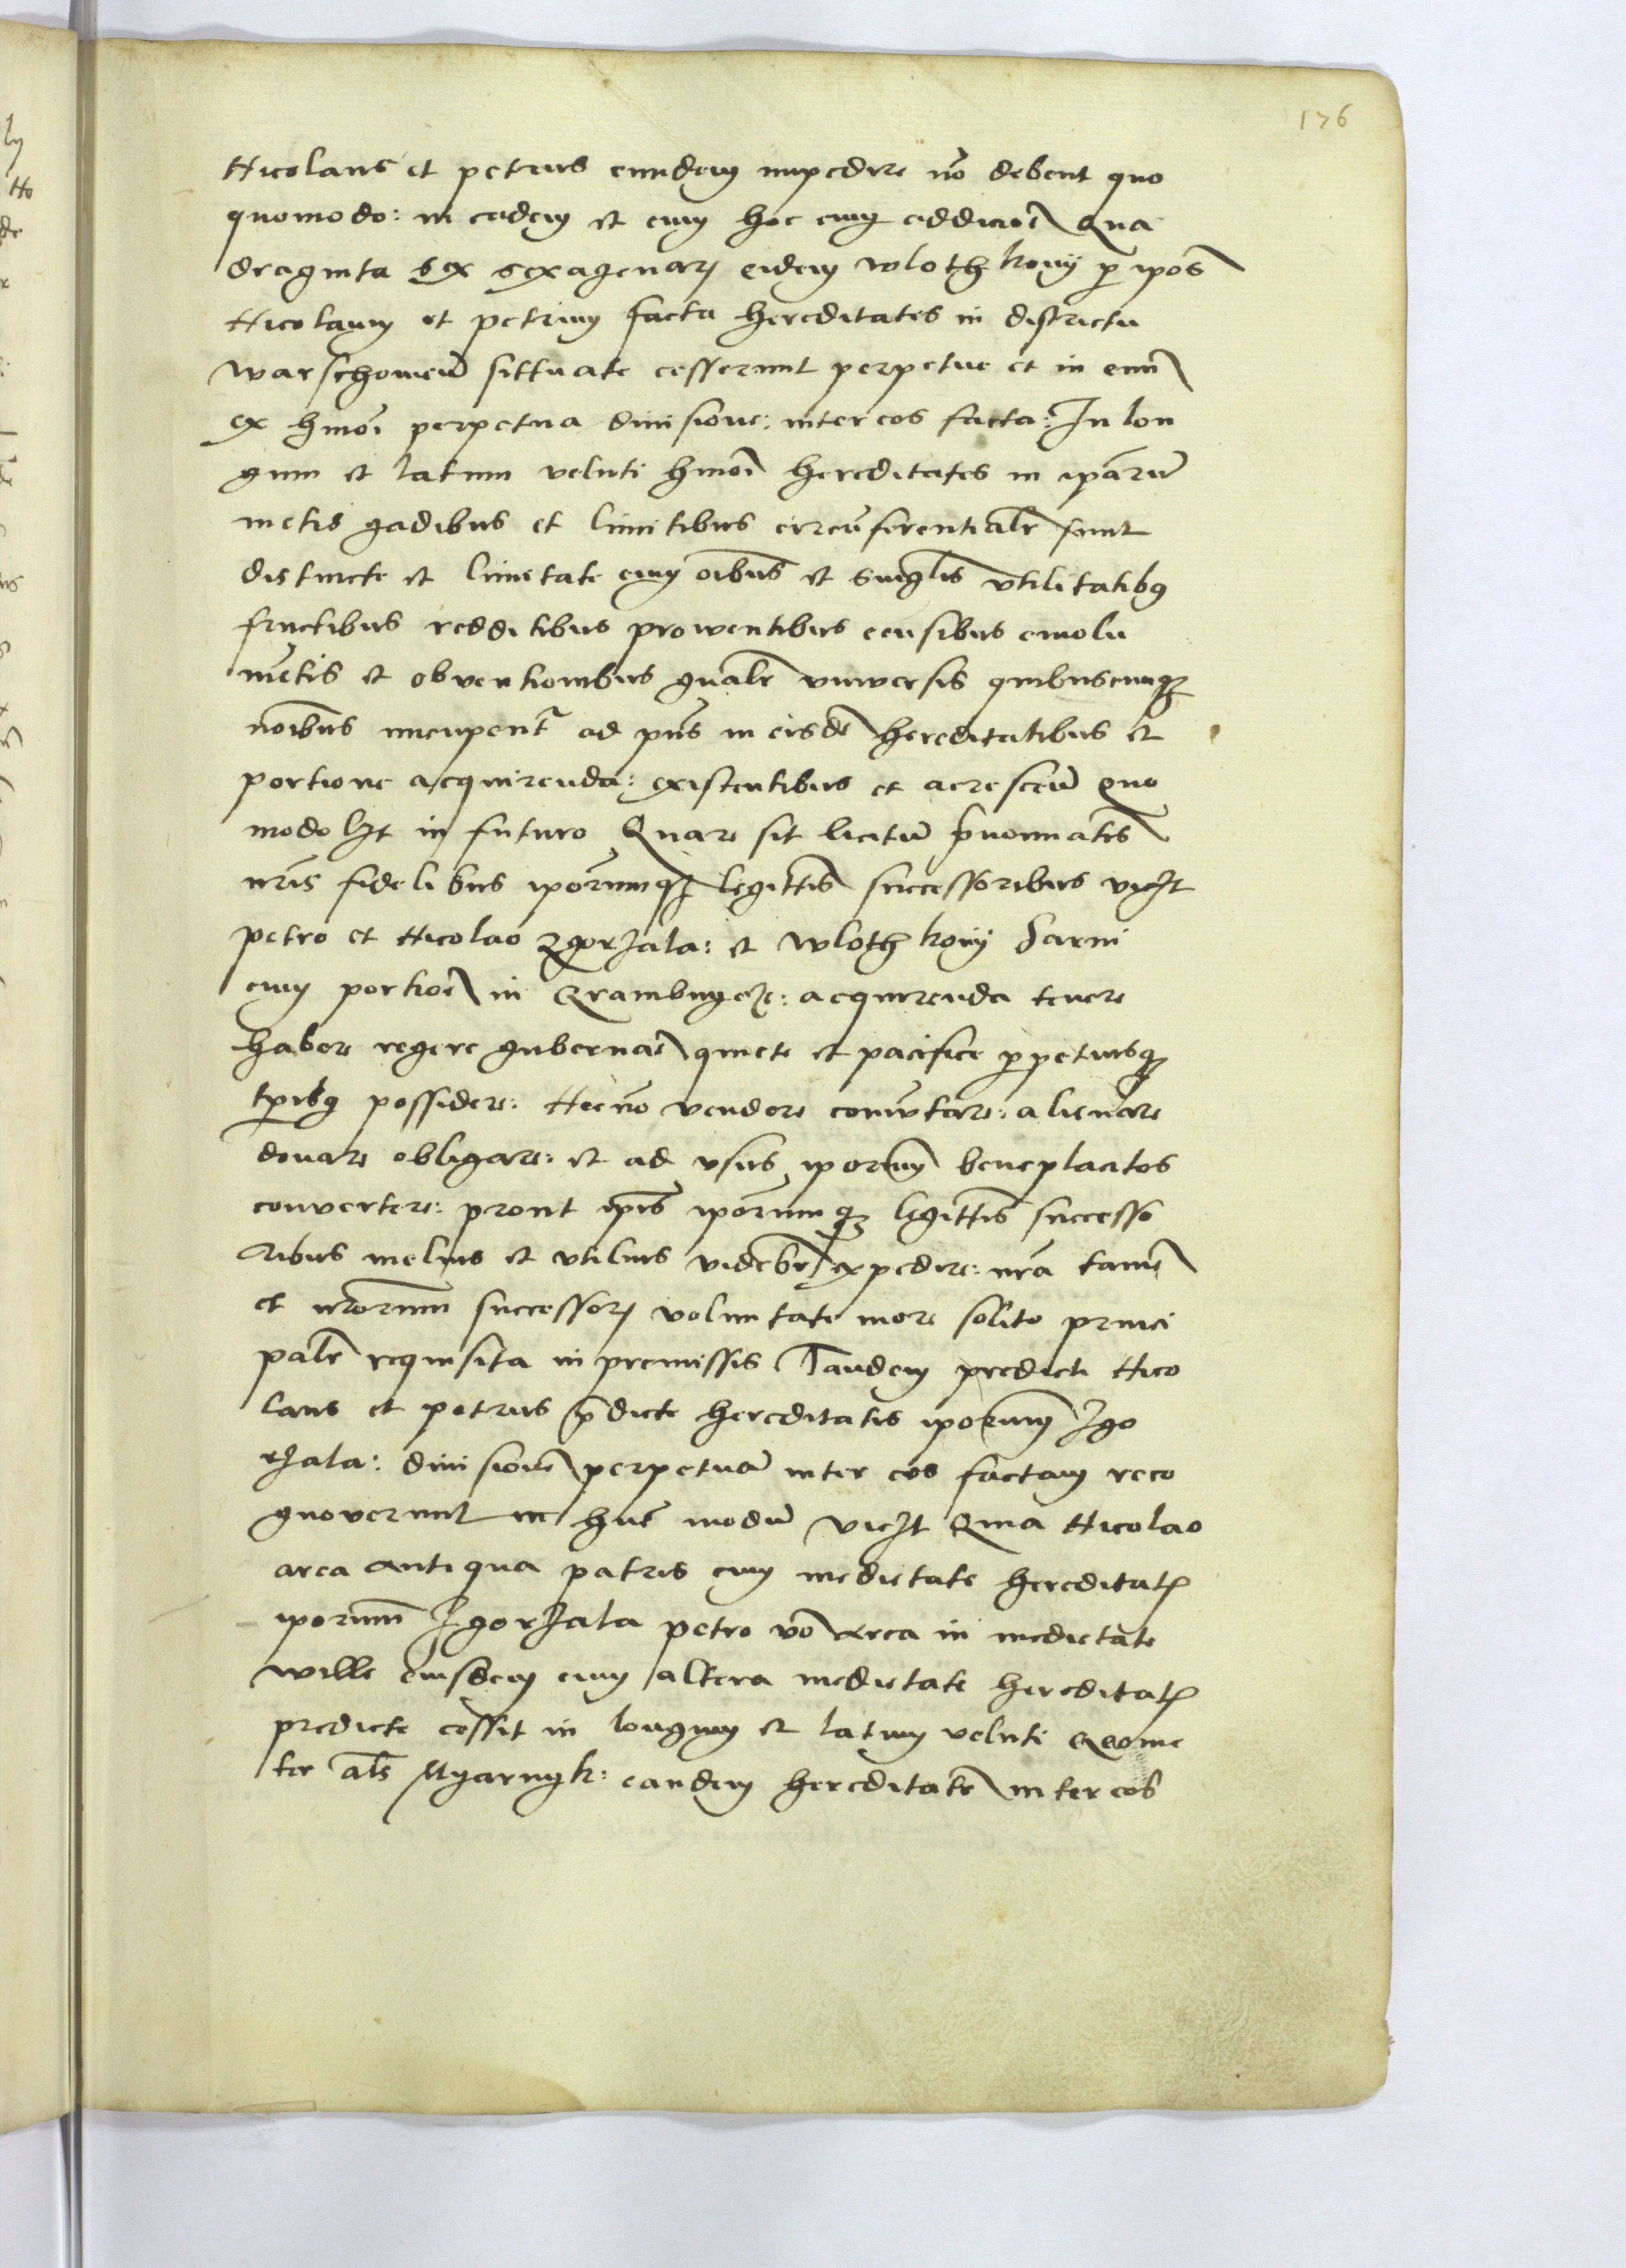 176
Nicolaus et petrus eundem impedire nõ debent quo
quomodo: in eadem et cum hoc cum addicioñ Qua
draginta sex sexagenarum eidem wlothkony p ipõs
Nicolaum et petrum facta hereditates in districtu
warschouieñ sittuate cesserunt perpetue et in eum
ex hmõi perpetua diuisione: inter eos facta: In lon
gum et latum veluti hmõi hereditates in ipãrũ
metis gadibus et limitibus circũferentialr sunt
distincte et limitate cum oĩbus et singlis vtilitatibq
fructibus redditibus prouentibus censibus emolu
mẽtis et obventionibus gñalr vniversis quibuscumqz
noĩbus nuncupentr ad pñs in eisdẽ hereditatibus et
portione acquirenda: existentibus et acresceñ quo
modolzt in futuro Quare sit licitũ prenominatis
nrĩs fidelibus ipõrumqz legittĩs successoribus viclzt
petro et Nicolao zgorzala: et wlothkony Sarni
cum portioñ in acquirenda tenere
habere regere gubernar quiete et pacifice ppetuisqz
tpibq possidere: Necnõ vendere comũtare: alienare
donare obligare: et ad vsus iporum beneplacitos
convertere: prout ipĩs ipõrumqz legittĩs successo
ribus melius et vtilius videbr expedire: nrã tamẽ
et nrõrum successorum voluntate more solito princi
palr requisita in premissis Tandem predicti Nico
laus et petrus pdicte hereditatis iporum Zgo
rzala: diuisionẽ perpetuã inter eos factam reco
gnoverunt in hũc modũ viclzt Quia Nicolao
area antiqua patris cum medietate hereditatis
iporum Zgorzala petro vo area in medietate
wille eiusdem cum altera medietate hereditatis
predicte cessit in longum et latum veluti Geome
ter als Myarnyk: eandem hereditatẽ inter eos